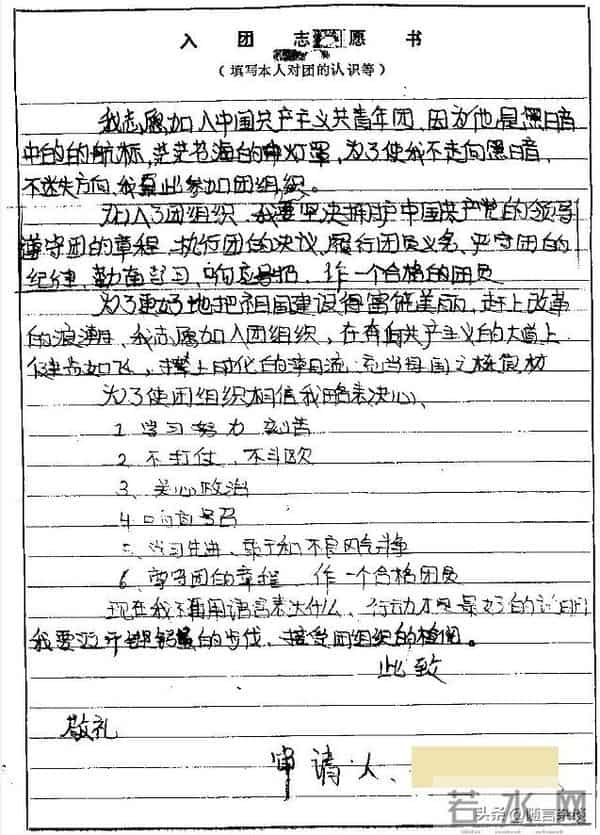 入团志愿书
（填写本人对团的认识等）
我志愿加入中国共产主义共青年团，因为他是黑暗
中的的航标，茫茫书海的中灯罩，为了使我不走向黑暗，
不迷失方向，我 此参加团组织。
加入了团组织，我要坚决拥护中国共产党的领导
遵守团的章程，执行团的决议，履行团员义务，严守团的
纪律，勤奋学习，响应号把，作一个合格的团员
为了更好地把祖国建设得富饶美丽，赶上改革
的浪潮，我志愿加入团组织，在奔向共产主义的大道上
健步如飞，攀上时化的潮流，充当母国之栋梁材
为了使团组织相信我略表决心、
1 学习努力 刻苦
2、不打仗、不斗欧
3、关心政治
4 响应号召
5、学习先进、敢于和不良风气斗争
6、遵守团的章程，作一个合格团员
现在我不再用语言表达什么、行动才是最好的证明
我要迈开 的步伐，接受团组织的检阅。
此致
敬礼
申请人、
头条@随言杂谈
若水网